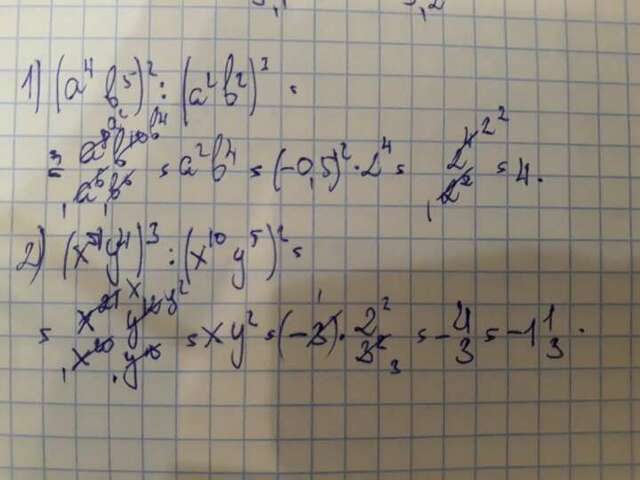 1) (a⁴ b⁵)² : (a² b²)³ =
= a⁸b¹⁰ / a⁶b⁶ = a² b⁴ = (-0,5)² · 2⁴ = 2⁴ / 2² = 4.
2) (x⁷ y⁴)³ : (x¹⁰ y⁵)² =
= x²¹ y¹² / x²⁰ · y¹⁰ = x y² = (-3) · 2² / 3² = - 4/3 = -1 1/3.